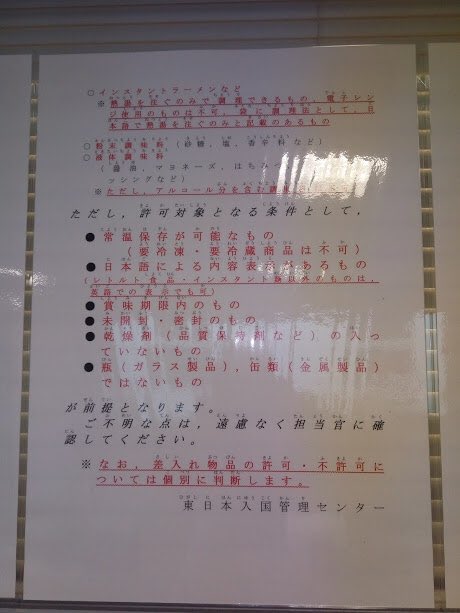 ○インスタントラーメンなど
※熱湯を注ぐのみで調理できるもの、電子レン
ジ使用のものは不可。袋に調理法として、日
本語で熱湯を注ぐのみと記載のあるもの
○粉末調味料（砂糖，塩，香辛料など）
○液体調味料
（醤油，マヨネーズ，はちみつ
ッシングなど）
※ただし，アルコール分を含む調味
ただし，許可対象となる条件として，
●常温保存が可能なもの
（要冷凍・要冷蔵商品は不可）
●日本語による内容表示があるもの
（レトルト食品・インスタント麺以外のものは，
英語での表示でも可）
●賞味期限内のもの
●未開封・密封のもの
●乾燥剤（品質保持剤など）の入っ
ていないもの
●瓶（ガラス製品），缶類（金属製品）
ではないもの
が前提となります。
ご不明な点は，遠慮なく担当官に確
認してください。
※なお，差入れ物品の許可・不許可に
ついては個別に判断します。
東日本入国管理センター